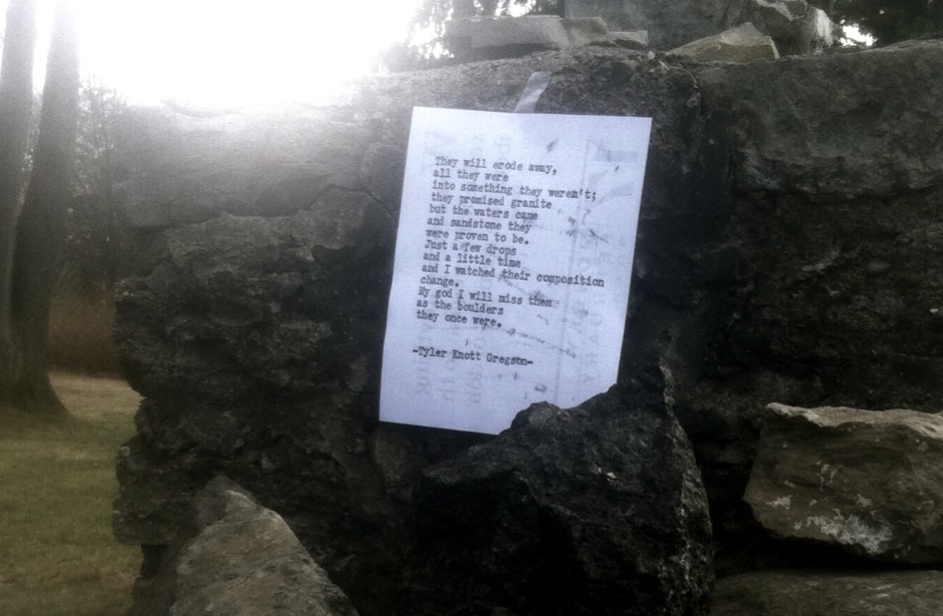 They will erode away,
all they were
into something they weren't;
they promised granite
but the waters came
and sandstone they
were proven to be.
Just a few drops
and a little time
and I watched their composition
change.
My god I will miss them
as the boulders
they once were.
-Tyler Knott Gregson-